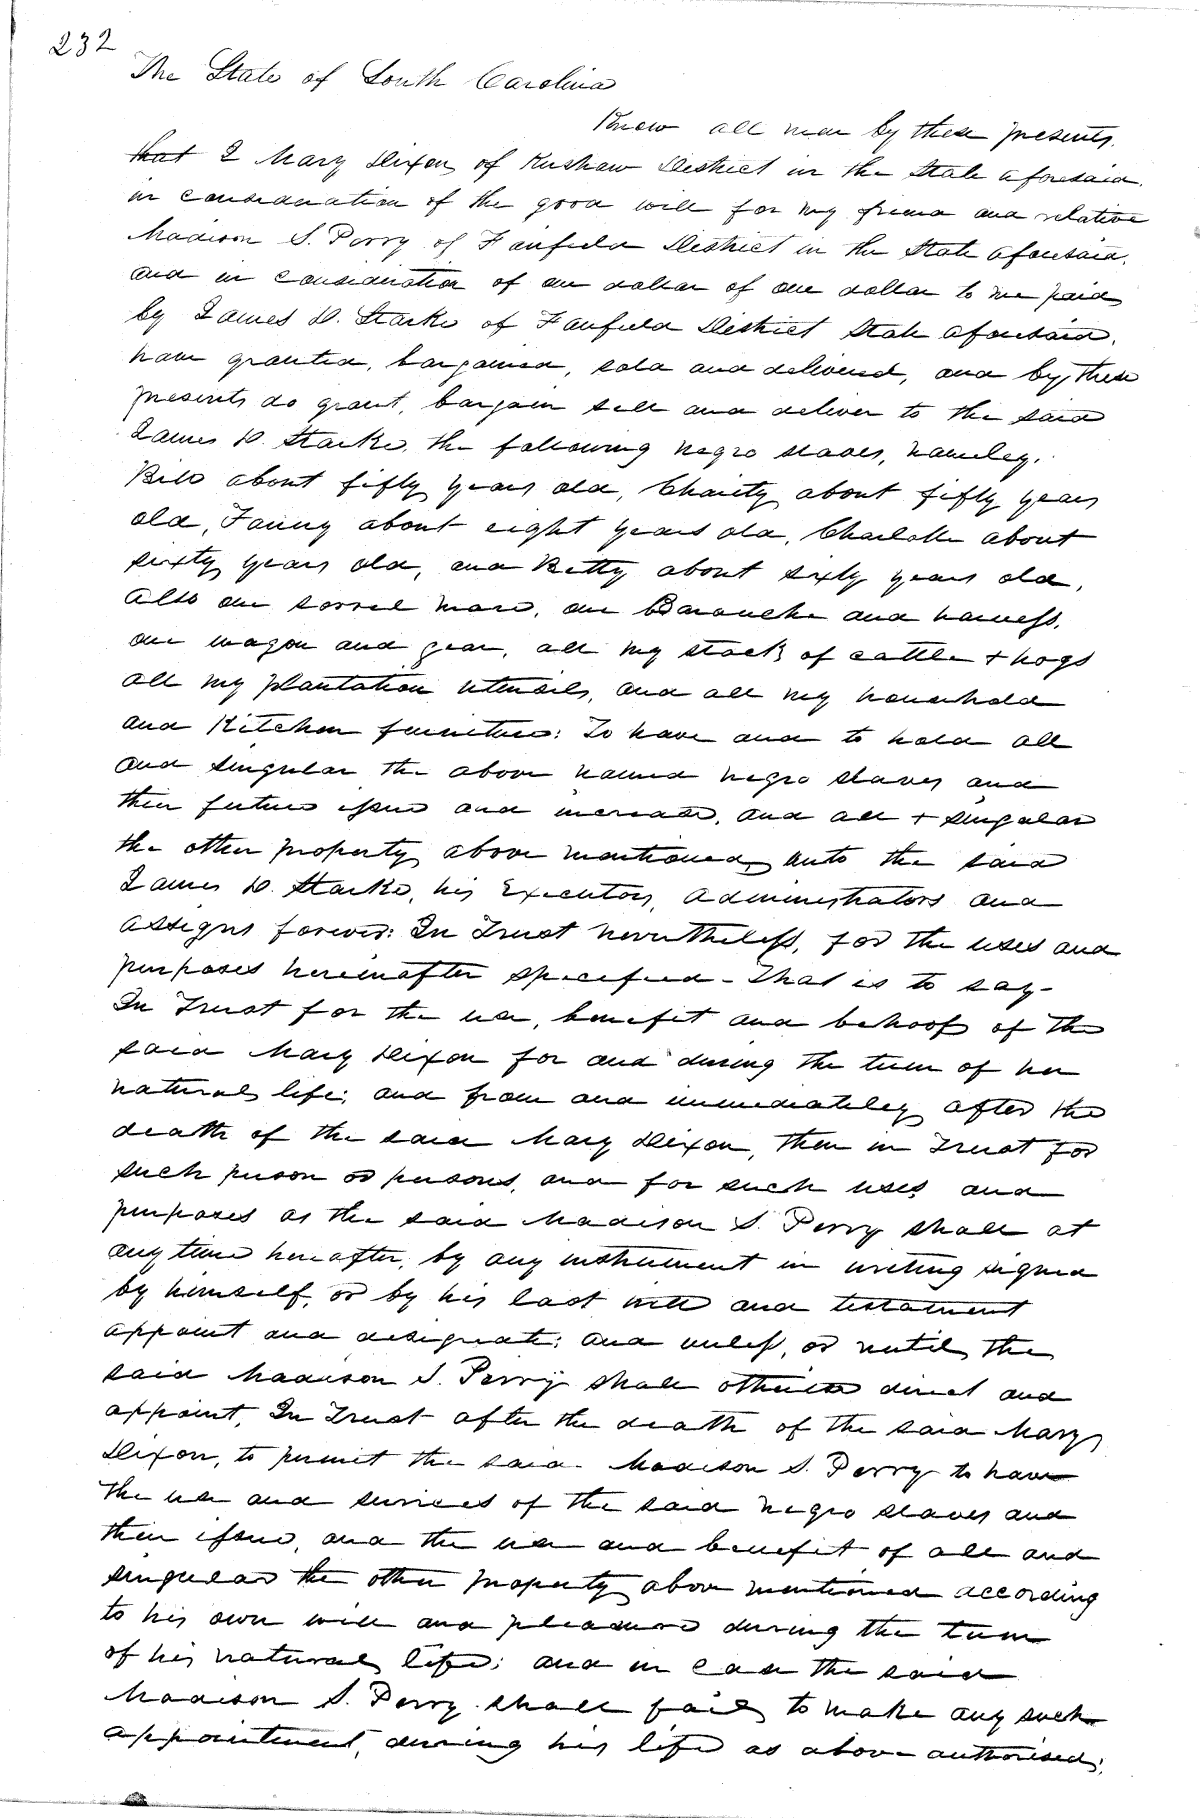 232
The State of South Carolina
Know all men by these presents.
that I Mary Dixon of Kershaw District in the State aforesaid.
in consideration of the good will for my friend and relative
Madison S. Perry of Fairfield District in the State aforesaid.
and in consideration of one dollar of one dollar to me paid
by James D. Starke of Fairfield District State aforesaid.
have granted, bargained, sold and delivered, and by these
presents do grant, bargain sell and deliver to the said
James D. Starke, the following negro slaves, namely.
about fifty years old, Charity about fifty years
old, Fanny about eight years old, Charlotte about
sixty years old, and Betty about sixty years old,
also one sorrel mare, one Barouche and harness,
one wagon and gear, all my stock of cattle + hogs
all my plantation utensils, and all my household
and Kitchen furniture: To have and to hold all
and singular the above named negro slaves and
their future issue and increase, and all + singular
the other property above mentioned unto the said
James D. Starke, his Executors, administrators and
assigns forever: In Trust nevertheless, for the uses and
purposes hereinafter specified - That is to say -
In Trust for the use, benefit and behoof of the
said Mary Dixon for and during the term of her
natural life; and from and immediately after the
death of the said Mary Dixon, then in Trust for
such person or persons, and for such uses and
purposes as the said Madison S. Perry shall at
any time hereafter, by any instrument in writing signed
by himself, or by his last will and testament
appoint and designate; and unless, or until the
said Madison S. Perry shall otherwise direct and
appoint, In Trust after the death of the said Mary
Dixon, to permit the said Madison S. Perry to have
the use and services of the said negro slaves and
their issue, and the use and benefit of all and
singular the other property above mentioned according
to his own will and pleasure during the term
of his natural life; and in case the said
Madison S. Perry shall fail to make any such
appointment, during his life as above authorised;